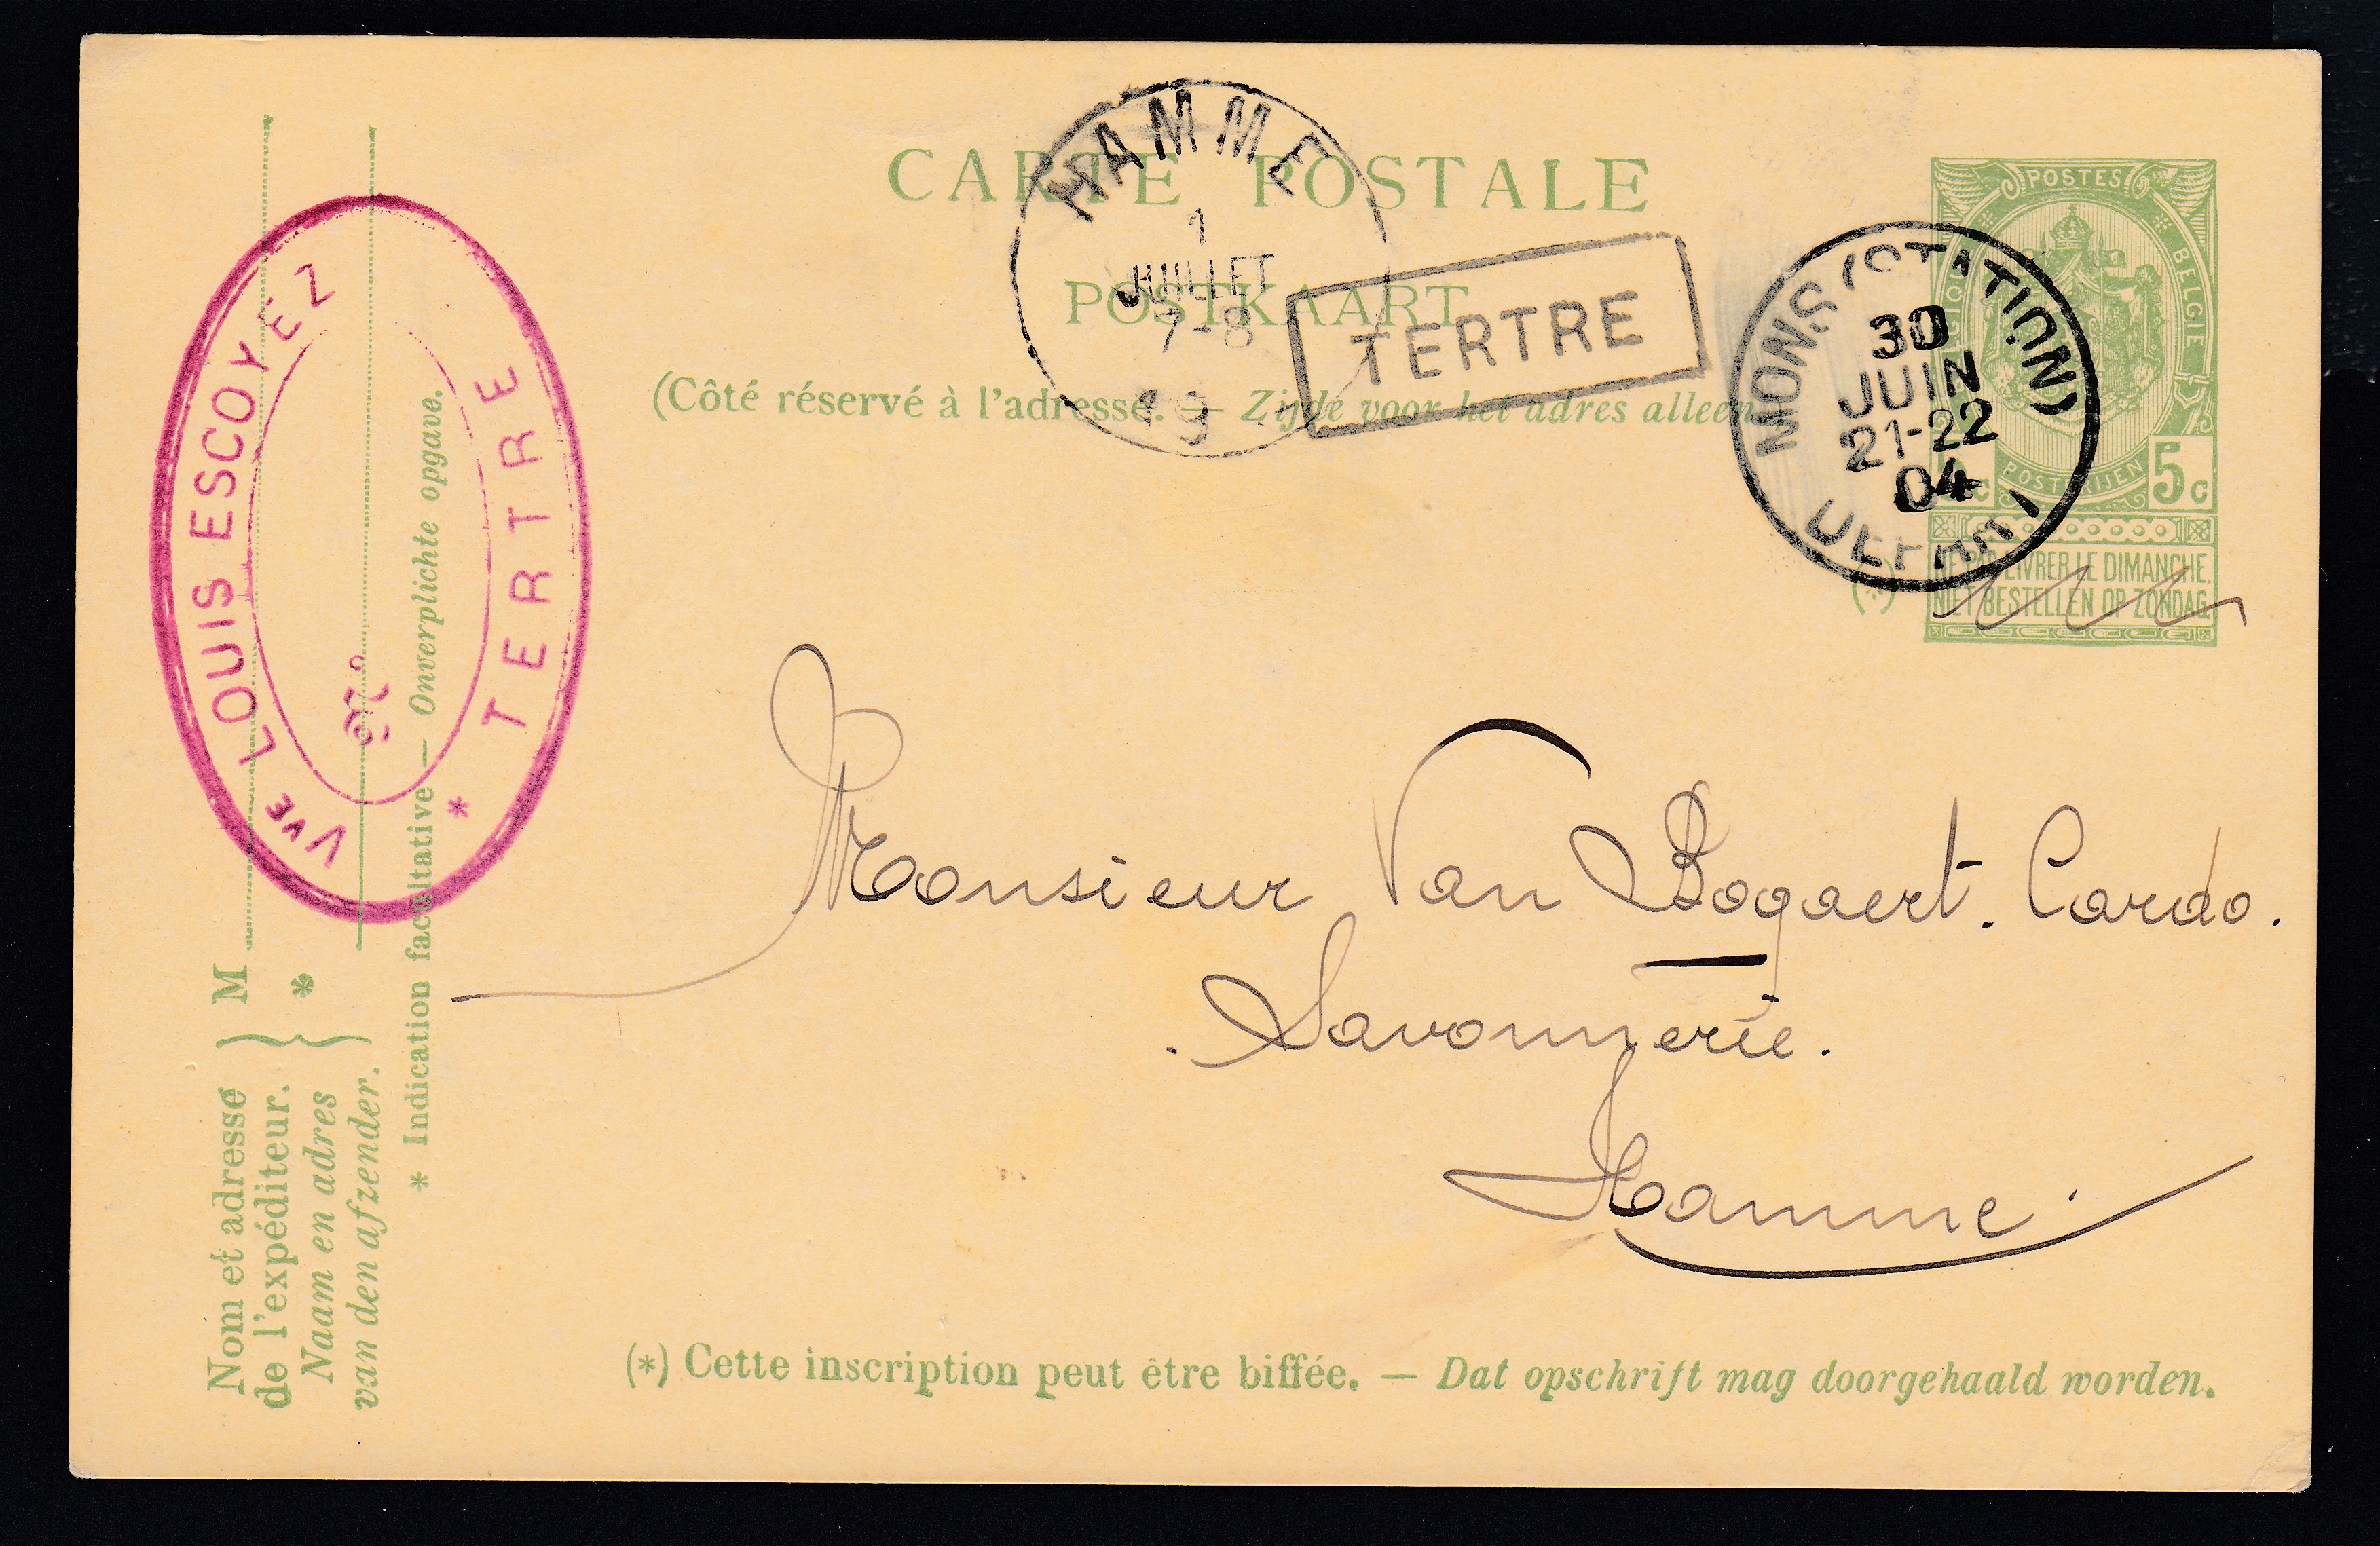 CARTE POSTALE
POSTKAART
(Côté réservé à l'adresse. — Zijde voor het adres alleen
HAMME
1
JUILLET
7-8
19
TERTRE
MONS (STATION)
30
JUIN
21-22
04
DEPART
POSTES
BELGIE
POSTERIJEN
5c
NE PAS LIVRER LE DIMANCHE.
NIET BESTELLEN OP ZONDAG.
(*)
Vve LOUIS ESCOYEZ
* TERTRE
No
Nom et adresse
de l'expéditeur. } M
Naam en adres
van den afzender. } *
* Indication facultative — Onverplichte opgave.
Monsieur Van Bogaert. Cardo.
Savonnerie.
Hamme.
(*) Cette inscription peut être biffée. — Dat opschrift mag doorgehaald worden.